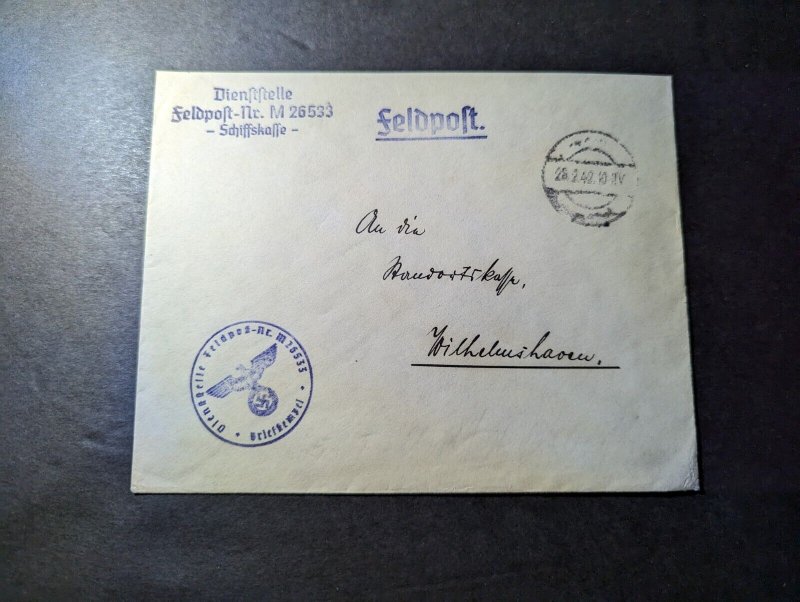 Dienststelle
Feldpost-Nr. M 26533
- Schiffskasse -
Feldpost.
An die
Standortskasse,
Wilhelmshaven.
Dienststelle Feldpost-Nr. M 26533
Briefstempel